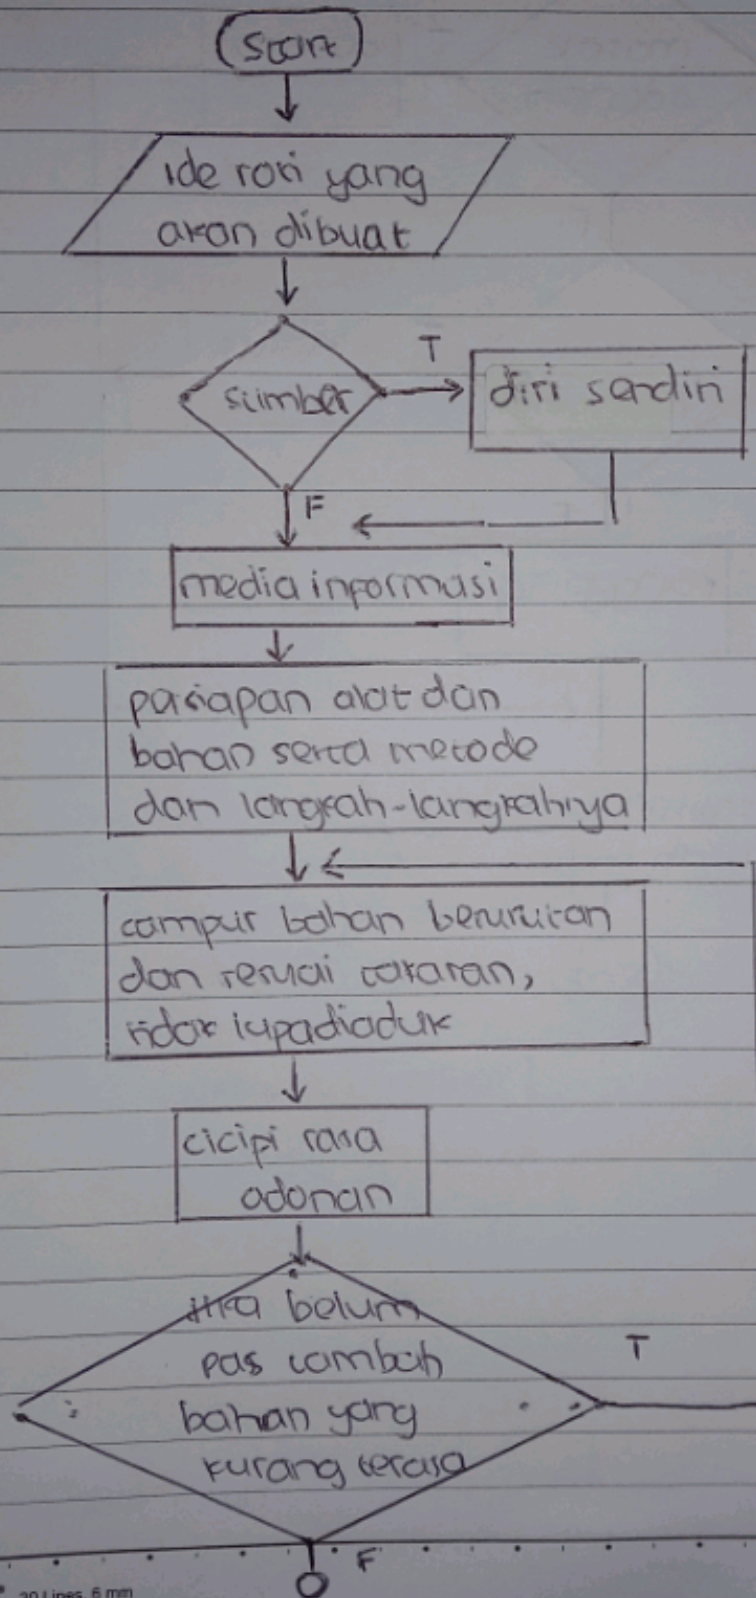 Start
ide roti yang
akan dibuat
sumber
T
diri sendiri
F
media informasi
persiapan alat dan
bahan serta metode
dan langkah-langkahnya
campur bahan berurutan
dan sesuai takaran,
tidak lupa diaduk
cicipi rasa
adonan
jika belum
pas tambah
bahan yang
kurang terasa
T
F
30 Lines, 6 mm